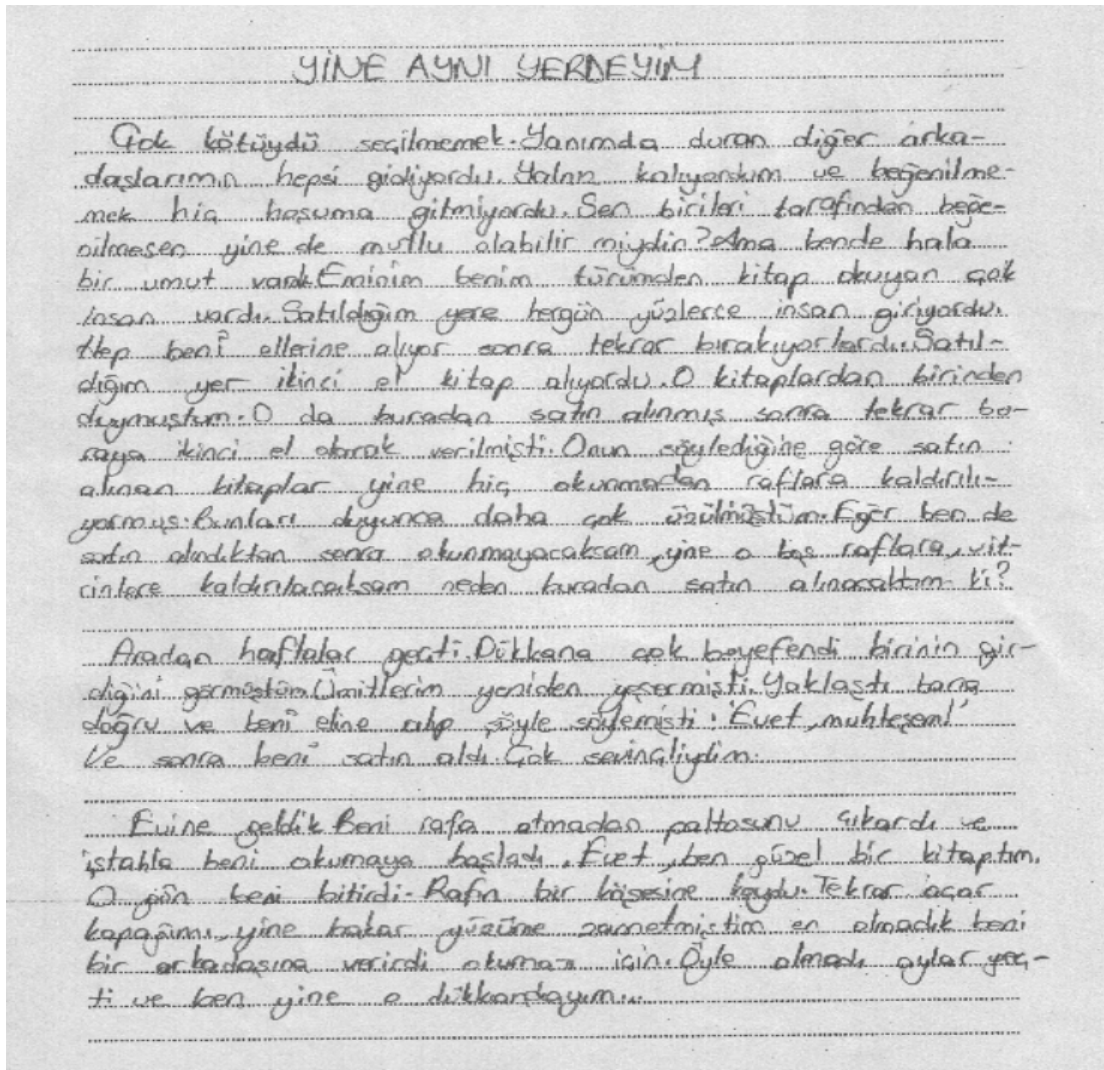 YİNE AYNI YERDEYİM
Çok kötüydü seçilmemek. Yanımda duran diğer arka-
daşlarımın hepsi gidiyordu. Yalnız kalıyordum ve beğenilme-
mek hiç hoşuma gitmiyordu. Sen birileri tarafından beğe-
nilmesen yine de mutlu olabilir miydin? Ama bende hala
bir umut vardı. Eminim benim türümden kitap okuyan çok
insan vardı. Satıldığım yere hergün yüzlerce insan giriyordu.
Hep beni ellerine alıyor sonra tekrar bırakıyorlardı. Satıl-
dığım yer ikinci el kitap alıyordu. O kitaplardan birinden
duymuştum. O da buradan satın alınmış sonra tekrar bu-
raya ikinci el olarak verilmişti. Onun söylediğine göre satın
alınan kitaplar yine hiç okunmadan raflara kaldırılı-
yormuş. Bunları duyunca daha çok üzülmüştüm. Eğer ben de
satın alındıktan sonra okunmayacaksam, yine o boş raflara, vit-
rinlere kaldırılacaksam neden buradan satın alınacaktım ki?
Aradan haftalar geçti. Dükkana çok beyefendi birinin gir-
diğini görmüştüm. Ümitlerim yeniden yeşermişti. Yaklaştı bana
doğru ve beni eline alıp şöyle söylemişti: 'Evet, muhteşem!'
Ve sonra beni satın aldı. Çok sevinçliydim.
Evine geldik. Beni rafa atmadan paltosunu çıkardı ve
iştahla beni okumaya başladı. Evet, ben güzel bir kitaptım.
O gün beni bitirdi. Rafın bir köşesine koydu. Tekrar açar
kapağımı, yine bakar yüzüme zannetmiştim en olmadık beni
bir arkadaşına verirdi okuması için. Öyle olmadı aylar geç-
ti ve ben yine o dükkandayım...